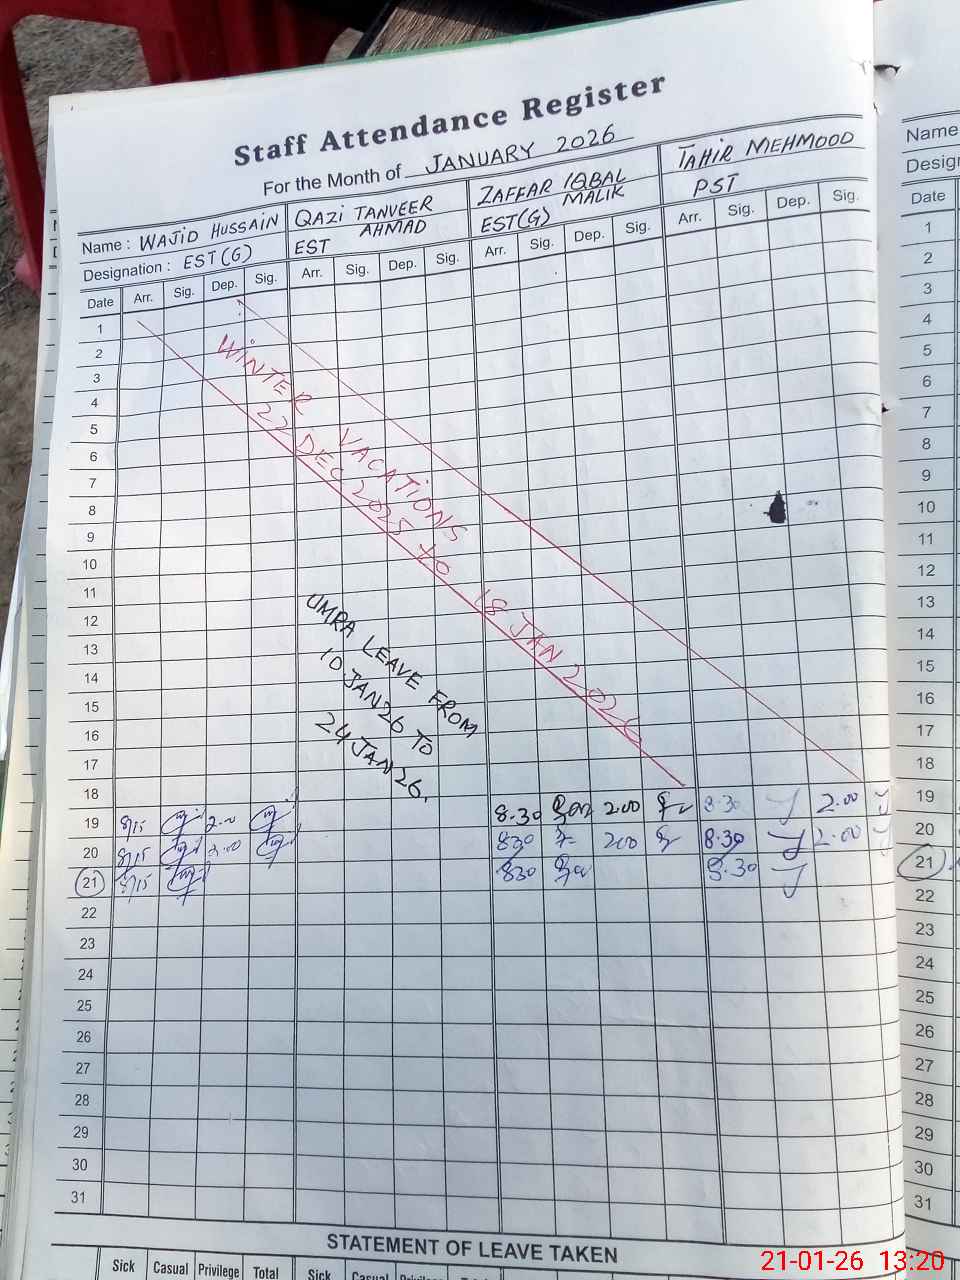 Staff Attendance Register
For the Month of JANUARY 2026
Name : WAJID HUSSAIN QAZI TANVEER AHMAD ZAFFAR IQBAL MALIK TAHIR MEHMOOD
Designation : EST(G) EST EST(G) PST
Date Arr. Sig. Dep. Sig. Arr. Sig. Dep. Sig. Arr. Sig. Dep. Sig. Arr. Sig. Dep. Sig.
1
2
3
4
5
6
7
8
9
10
11
12
13
14
15
16
17
18
WINTER VACATIONS
22 DEC 2025 to 18 JAN 2026
UMRA LEAVE FROM
10 JAN 26 TO
24 JAN 26.
19 8/15 2.00 8.30 200 8.30 2.00
20 8/15 2.00 830 200 8.30 2.00
21 8/15 830 8.30
22
23
24
25
26
27
28
29
30
31
STATEMENT OF LEAVE TAKEN
Sick Casual Privilege Total Sick Casual
Name
Date
1
2
3
4
5
6
7
8
9
10
11
12
13
14
15
16
17
18
19
20
21
22
23
24
25
26
27
28
29
30
31
21-01-26 13:20